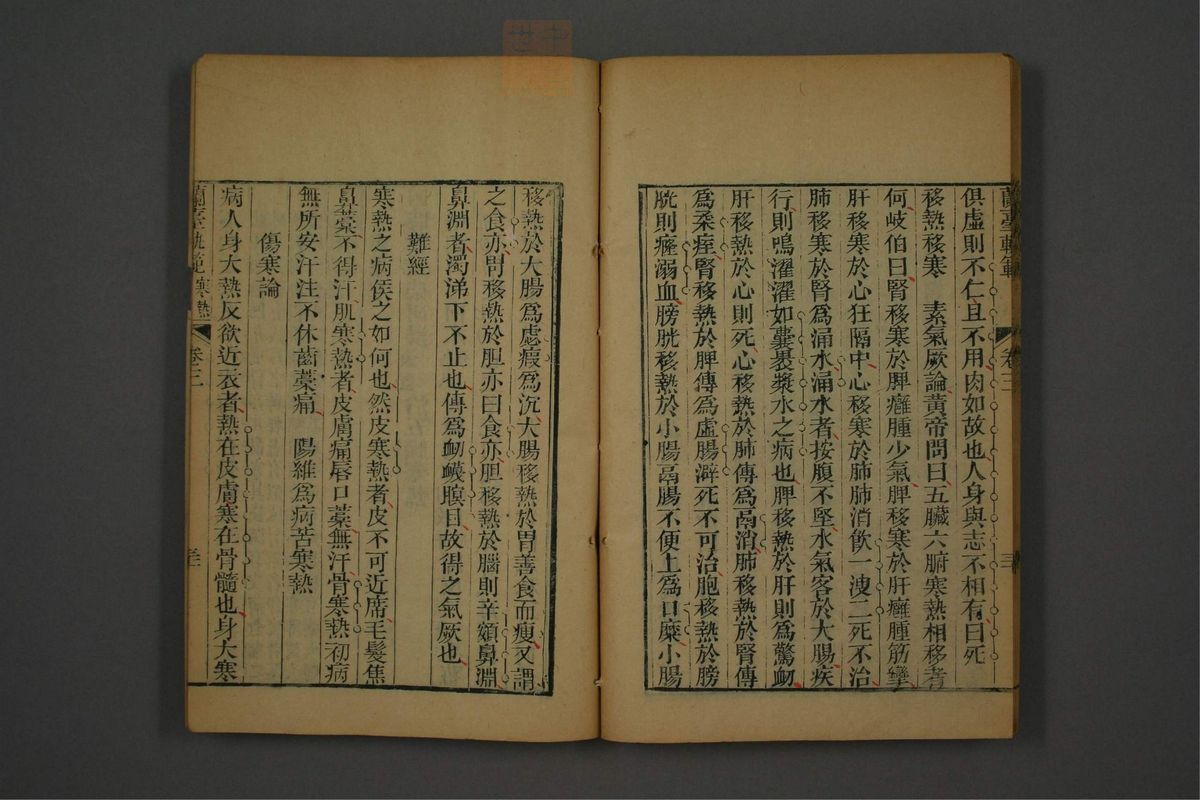 俱虛則不仁且不用肉如故也人身與志不相有曰死
移熱移寒 素氣厥論黃帝問曰五臟六腑寒熱相移者
何岐伯曰腎移寒於脾癰腫少氣脾移寒於肝癰腫筋攣
肝移寒於心狂隔中心移寒於肺肺消飲一溲二死不治
肺移寒於腎為涌水涌水者按腹不堅水氣客於大腸疾
行則鳴濯濯如囊裹漿水之病也脾移熱於肝則為驚衄
肝移熱於心則死心移熱於肺傳為鬲消肺移熱於腎傳
為柔痓腎移熱於脾傳為虛腸澼死不可治胞移熱於膀
胱則癃溺血膀胱移熱於小腸鬲腸不便上為口糜小腸
蘭臺軌範
卷三
三
移熱於大腸為虙瘕為沉大腸移熱於胃善食而瘦又謂
之食亦胃移熱於胆亦曰食亦胆移熱於腦則辛頞鼻淵
鼻淵者濁涕下不止也傳為衄衊瞑目故得之氣厥也
難經
寒熱之病侯之如何也然皮寒熱者皮不可近席毛髮焦
鼻藁不得汗肌寒熱者皮膚痛唇口藁無汗骨寒熱初病
無所安汗注不休齒藁痛 陽維為病苦寒熱
傷寒論
病人身大熱反欲近衣者熱在皮膚寒在骨髓也身大寒
蘭臺軌範 寒熱
卷三